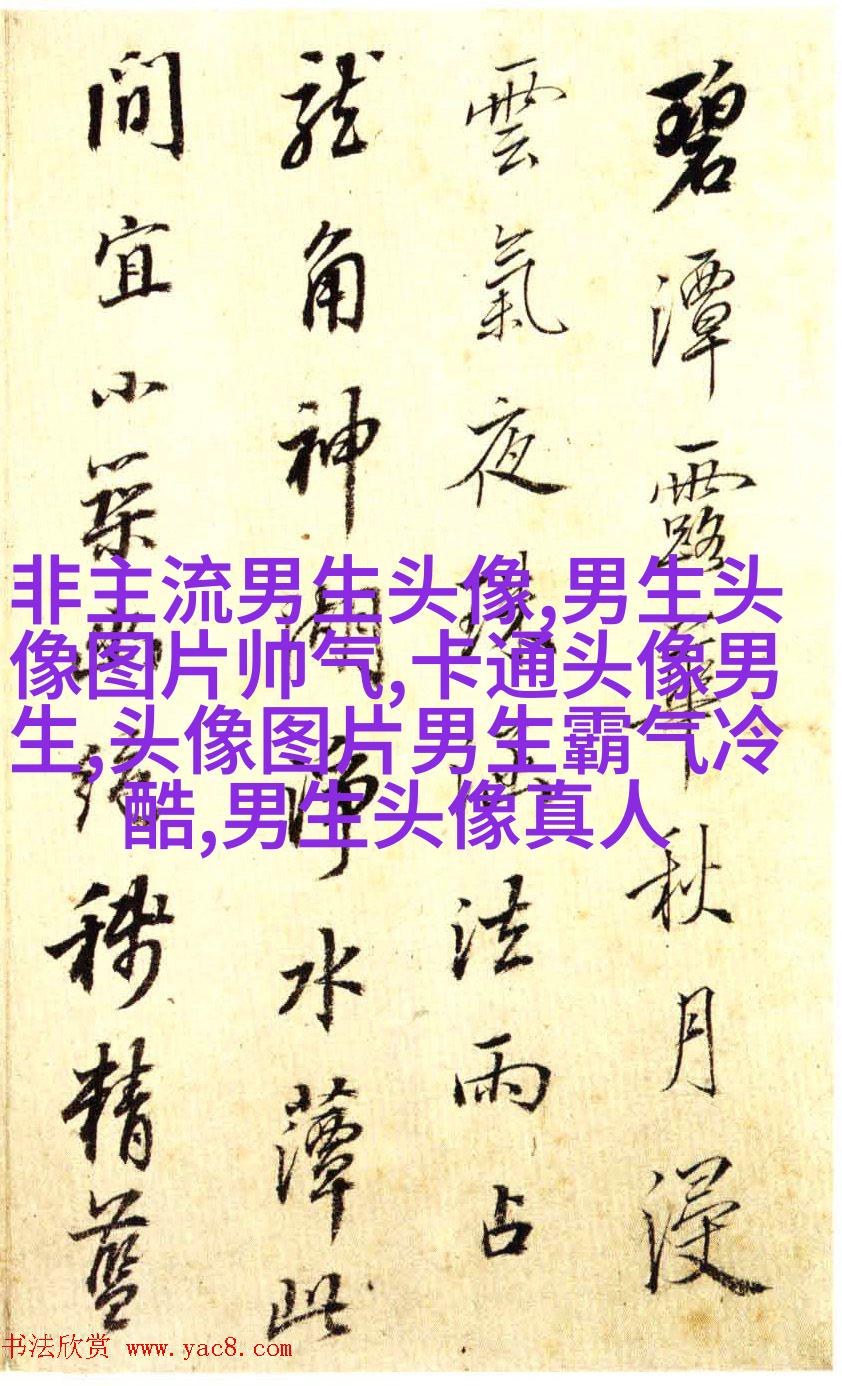 碧潭露華秋月浸
雲氣夜法雨占
龍角神淨水藫此
間宜小築幽結稱精藍
非主流男生头像,男生头
像图片帅气,卡通头像男
生,头像图片男生霸气冷
酷,男生头像真人
书法欣赏 www.yac8.com